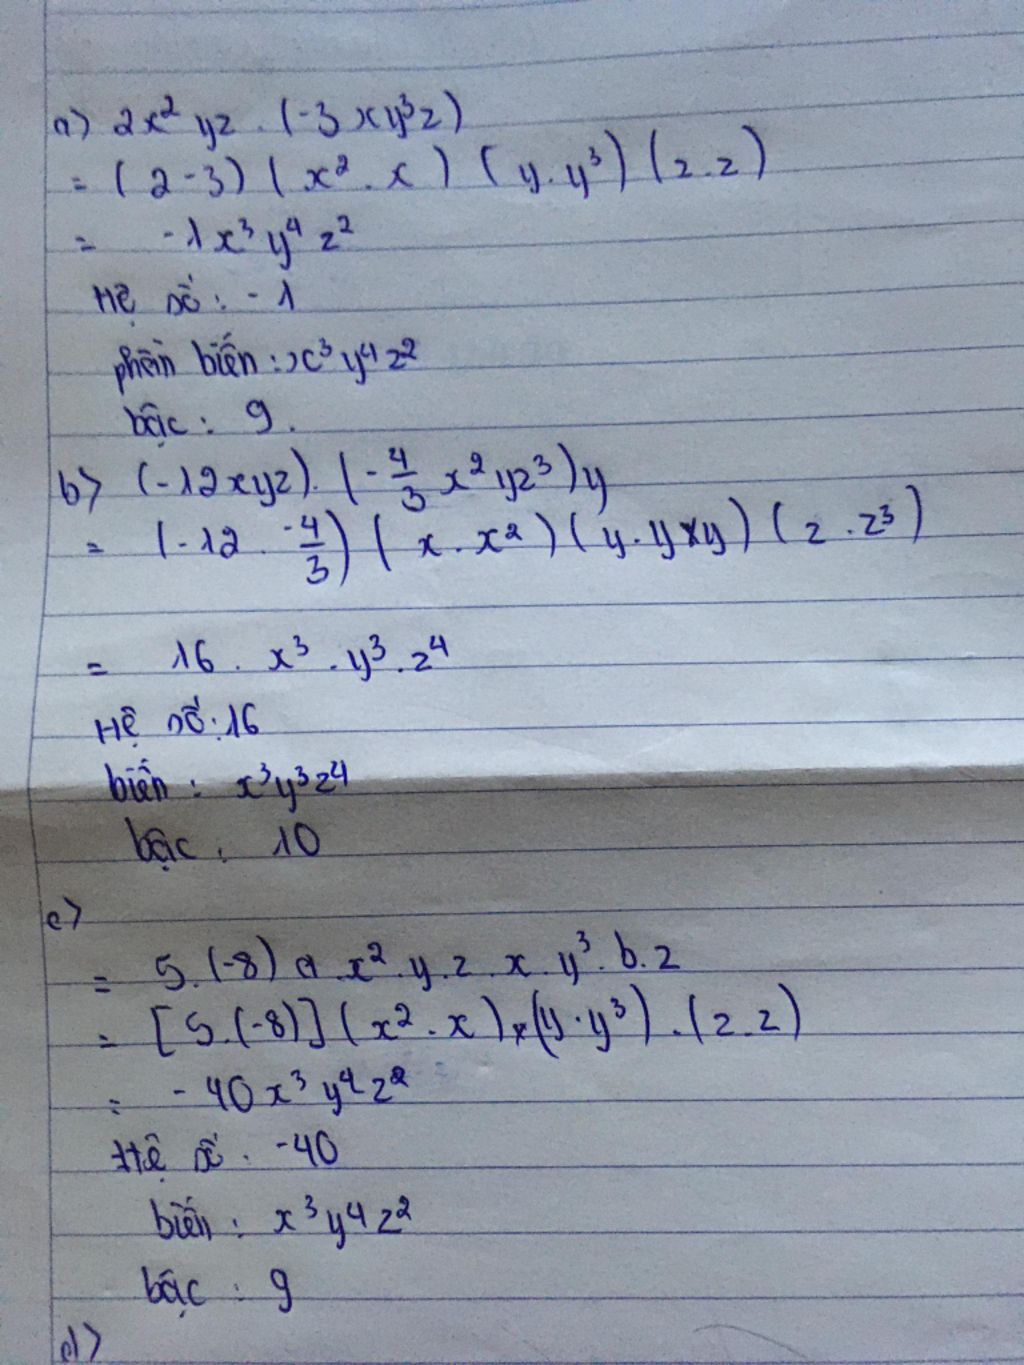 a) 2x² yz . (-3 xy³z)
= (2-3) (x² . x) (y . y³) (z . z)
= -1x³ y⁴ z²
Hệ số : - 1
phần biến : x³ y⁴ z²
bậc : 9.
b) (-12xyz) . (-4/3 x² yz³) y
= (-12 . -4/3) (x . x²) (y . y x y) (z . z³)
= 16 . x³ . y³ . z⁴
Hệ số : 16
biến : x³y³z⁴
bậc : 10
c)
= 5. (-8) a . x² . y . z . x . y³ . b . z
= [5.(-8)] (x² . x) x (y . y³) . (z . z)
= - 40 x³ y⁴ z²
Hệ số . -40
biến : x³ y⁴ z²
bậc : 9
d)